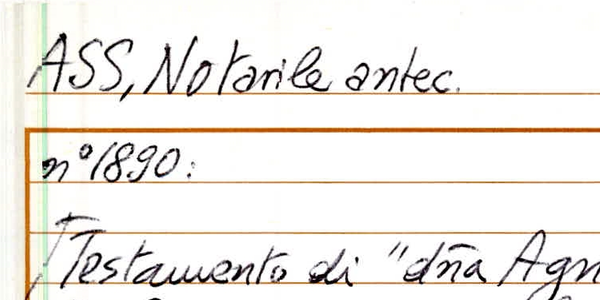 ASS, Notarile antec.
n° 1890:
Testamento di "dña Agn